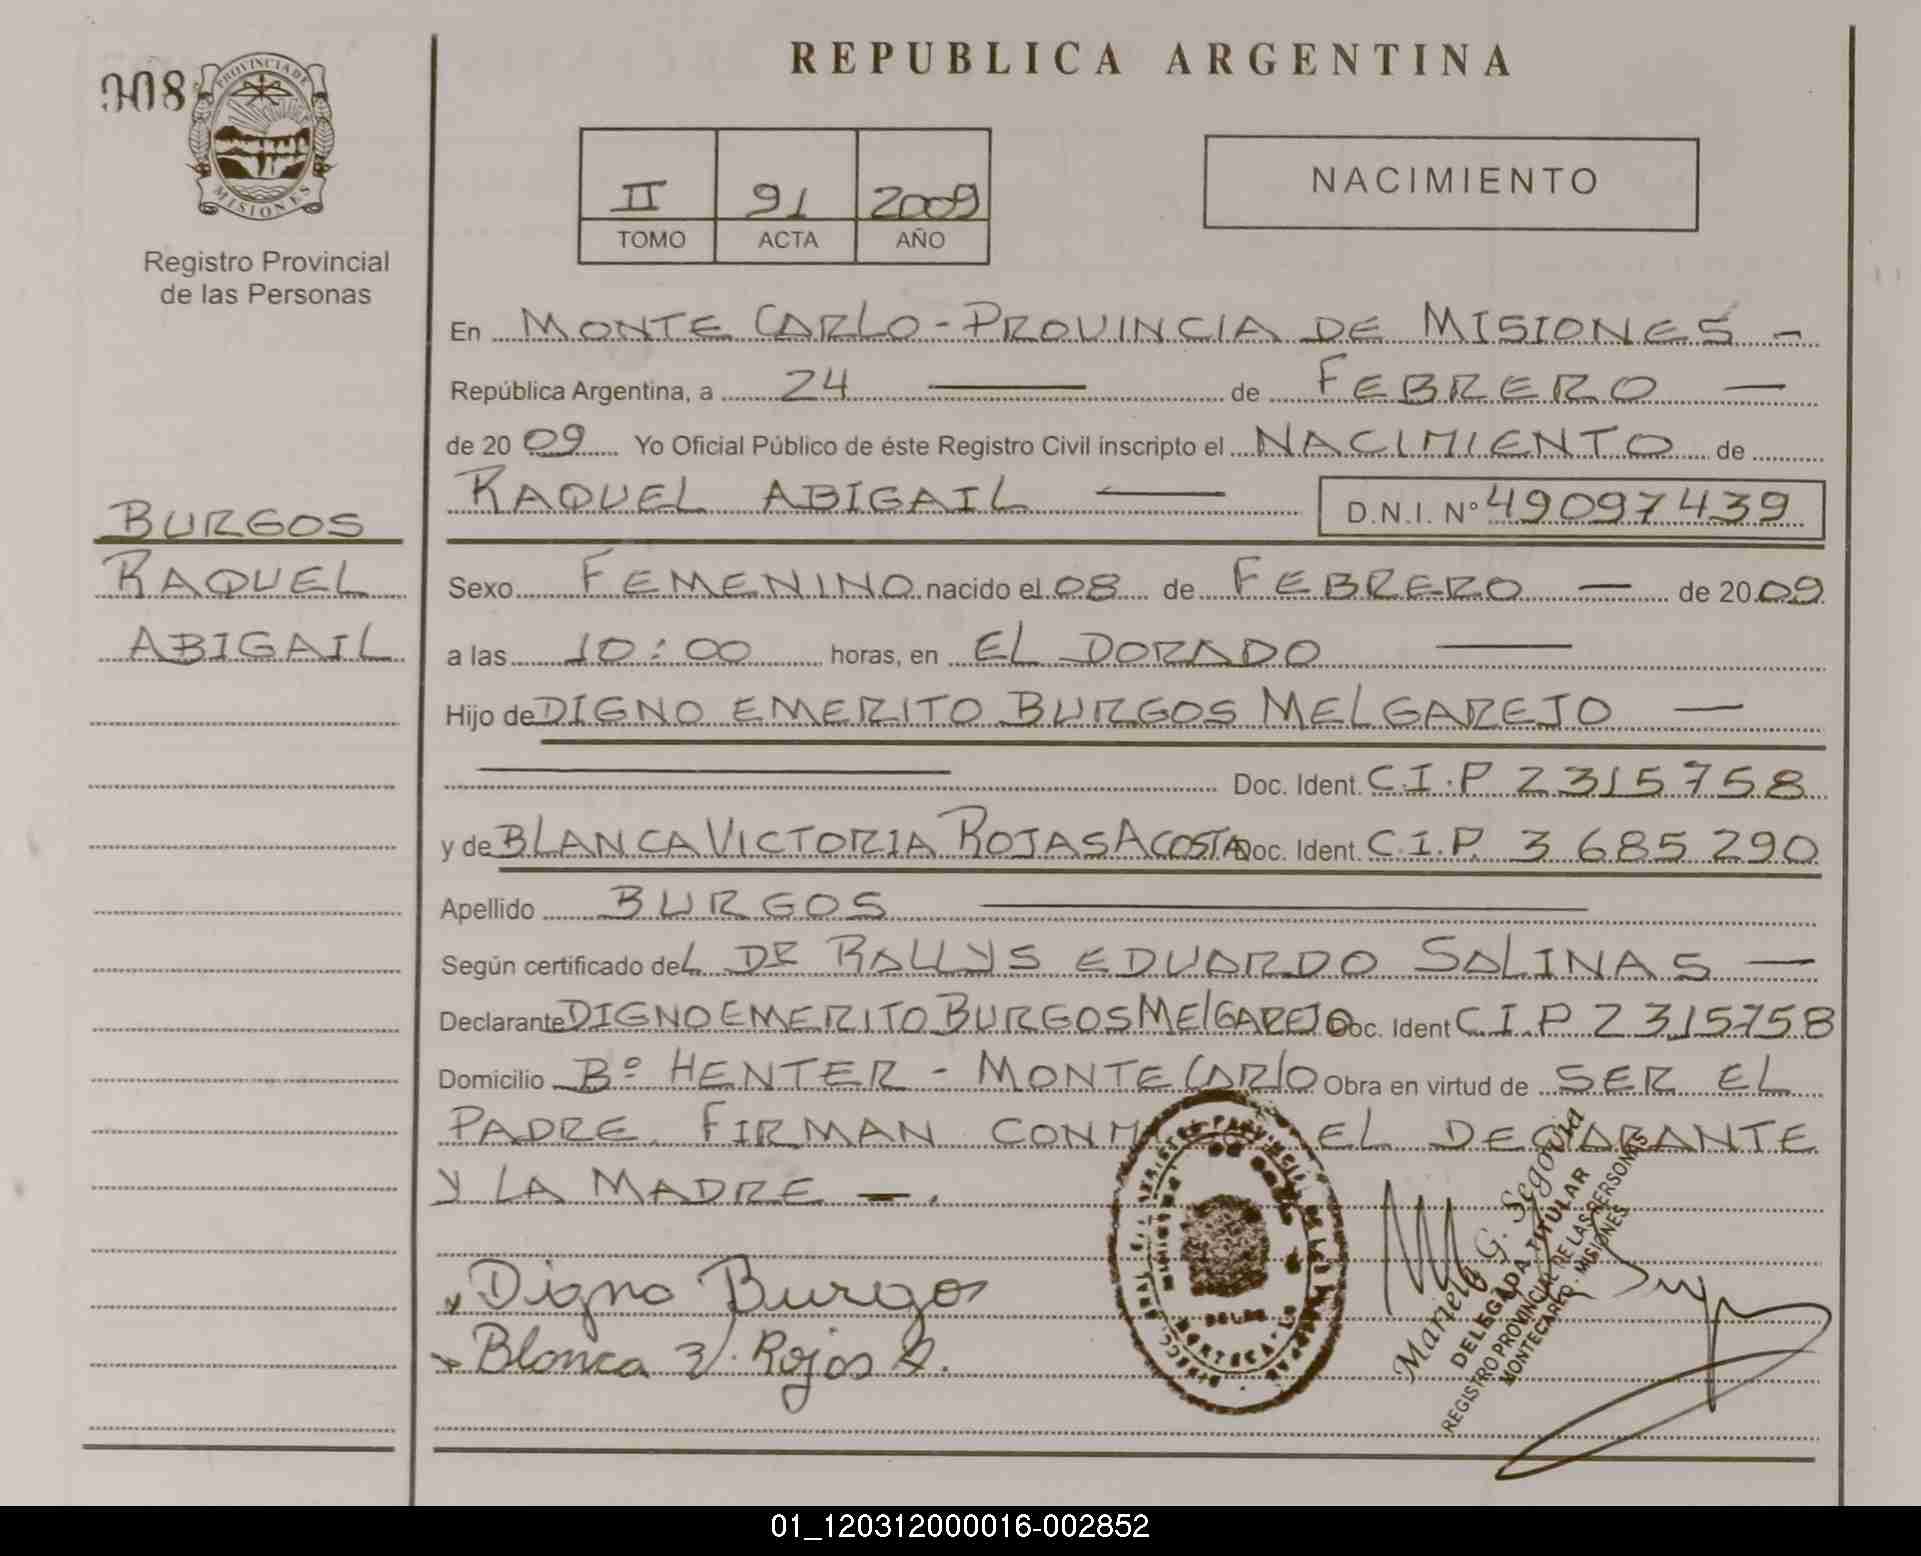 REPUBLICA ARGENTINA
008
PROVINCIA DE
MISIONES
Registro Provincial
de las Personas
II 91 2009
TOMO ACTA AÑO
NACIMIENTO
En MONTE CARLO - PROVINCIA DE MISIONES -
República Argentina, a 24 — de FEBRERO —
de 20 09 Yo Oficial Público de éste Registro Civil inscripto el NACIMIENTO de
RAQUEL ABIGAIL — D.N.I. Nº 49097439
BURGOS
RAQUEL
ABIGAIL
Sexo FEMENINO nacido el 08 de FEBRERO — de 20 09
a las 10:00 horas, en EL DORADO —
Hijo de DIGNO EMERITO BURGOS MELGAREJO —
— Doc. Ident. C.I.P 2315758
y de BLANCA VICTORIA ROJAS ACOSTA Doc. Ident. C.I.P. 3685290
Apellido BURGOS —
Según certificado deL DR RALLYS EDUARDO SALINAS —
Declarante DIGNO EMERITO BURGOS MELGAREJO Doc. Ident C.I.P 2315758
Domicilio Bº HENTER - MONTECARLO Obra en virtud de SER EL
PADRE. FIRMAN CONM EL DECLARANTE
Y LA MADRE —.
Digno Burgos
Blanca V. Rojas A.
Mariela G. Segovia
DELEGADA TITULAR
REGISTRO PROVINCIAL DE LAS PERSONAS
MONTECARLO - MISIONES
01_120312000016-002852